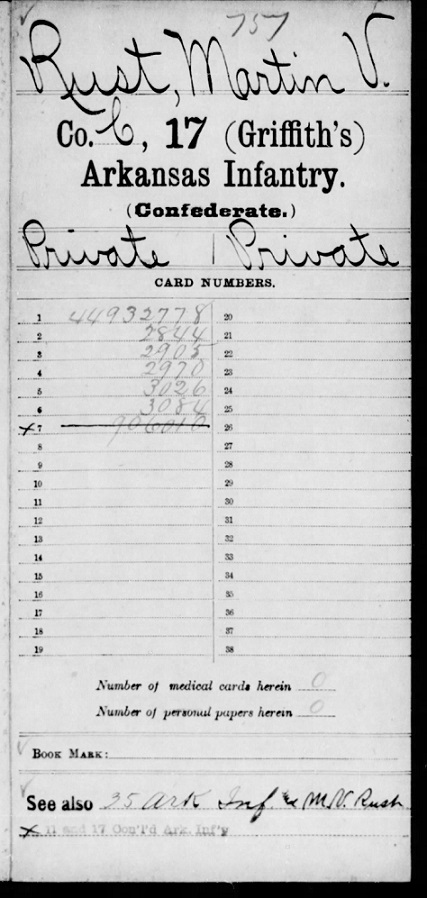 757
Rust, Martin V.
Co. C, 17 (Griffith's)
Arkansas Infantry.
(Confederate.)
Private | Private
CARD NUMBERS.
1 44932778 20
2 2844 21
3 2905 22
4 2970 23
5 3026 24
6 3084 25
x 7 906010 26
8 27
9 28
10 29
11 30
12 31
13 32
14 33
15 34
16 35
17 36
18 37
19 38
Number of medical cards herein 0
Number of personal papers herein 0
BOOK MARK:
See also 35 Ark Inf as M.V. Rush
x 11 and 17 Con'l'd Ark. Inf'y